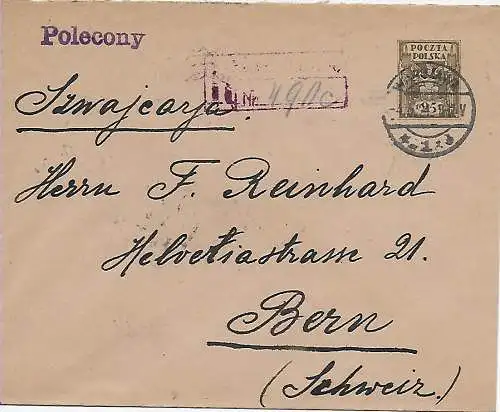 Polecony
POCZTA
POLSKA
Nr. 491c
25
Szwajcarja
Herrn F. Reinhard
Helvetiastrasse 21.
Bern
(Schweiz.)